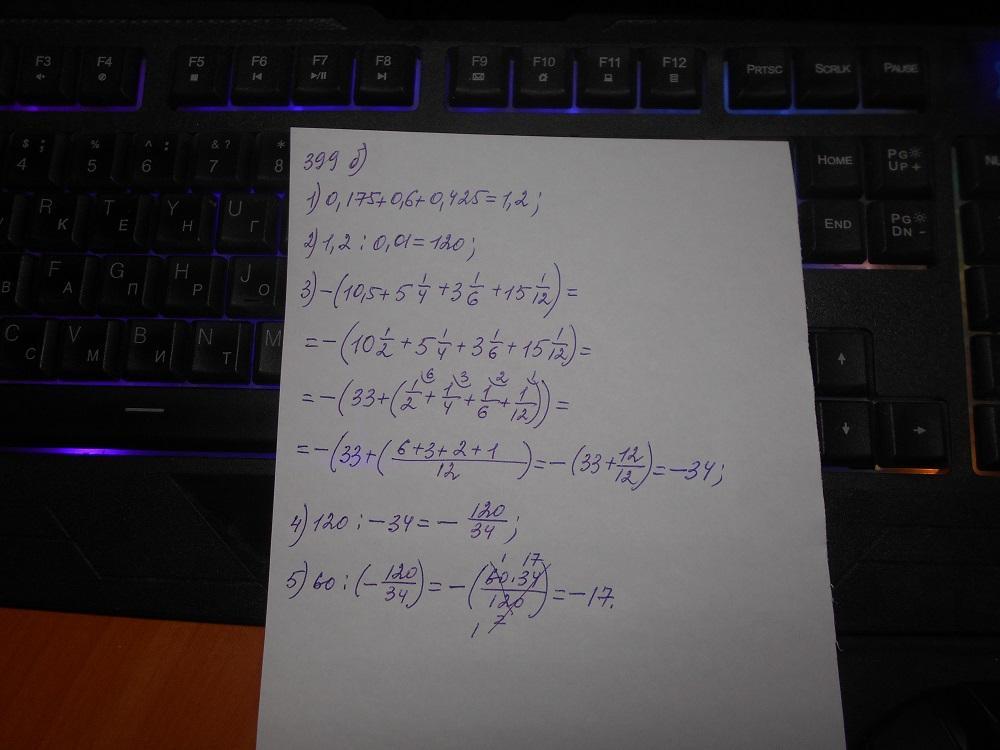 F3 F4 F5 F6 F7 F8 F9 F10 F11 F12 PRTSC SCRLK PAUSE
$ ; 4 % : 5 ^ : 6 & ? 7 * 8 HOME PG UP +
R К T Е Y Н U Г END PG DN -
В F А G П H Р J О
C С V М B И N Т M
399 б)
1) 0,175+0,6+0,425=1,2;
2) 1,2 : 0,01=120;
3) -(10,5+5 1/4 +3 1/6 +15 1/12)=
=-(10 1/2 +5 1/4 +3 1/6 +15 1/12)=
=-(33+(1/2 6 + 1/4 3 + 1/6 2 + 1/12 1))=
=-(33+(6+3+2+1/12)=-(33+12/12)=-34;
4) 120 : -34 = - 120/34;
5) 60 : (-120/34) = -(60·34/120) = -17.
1 17